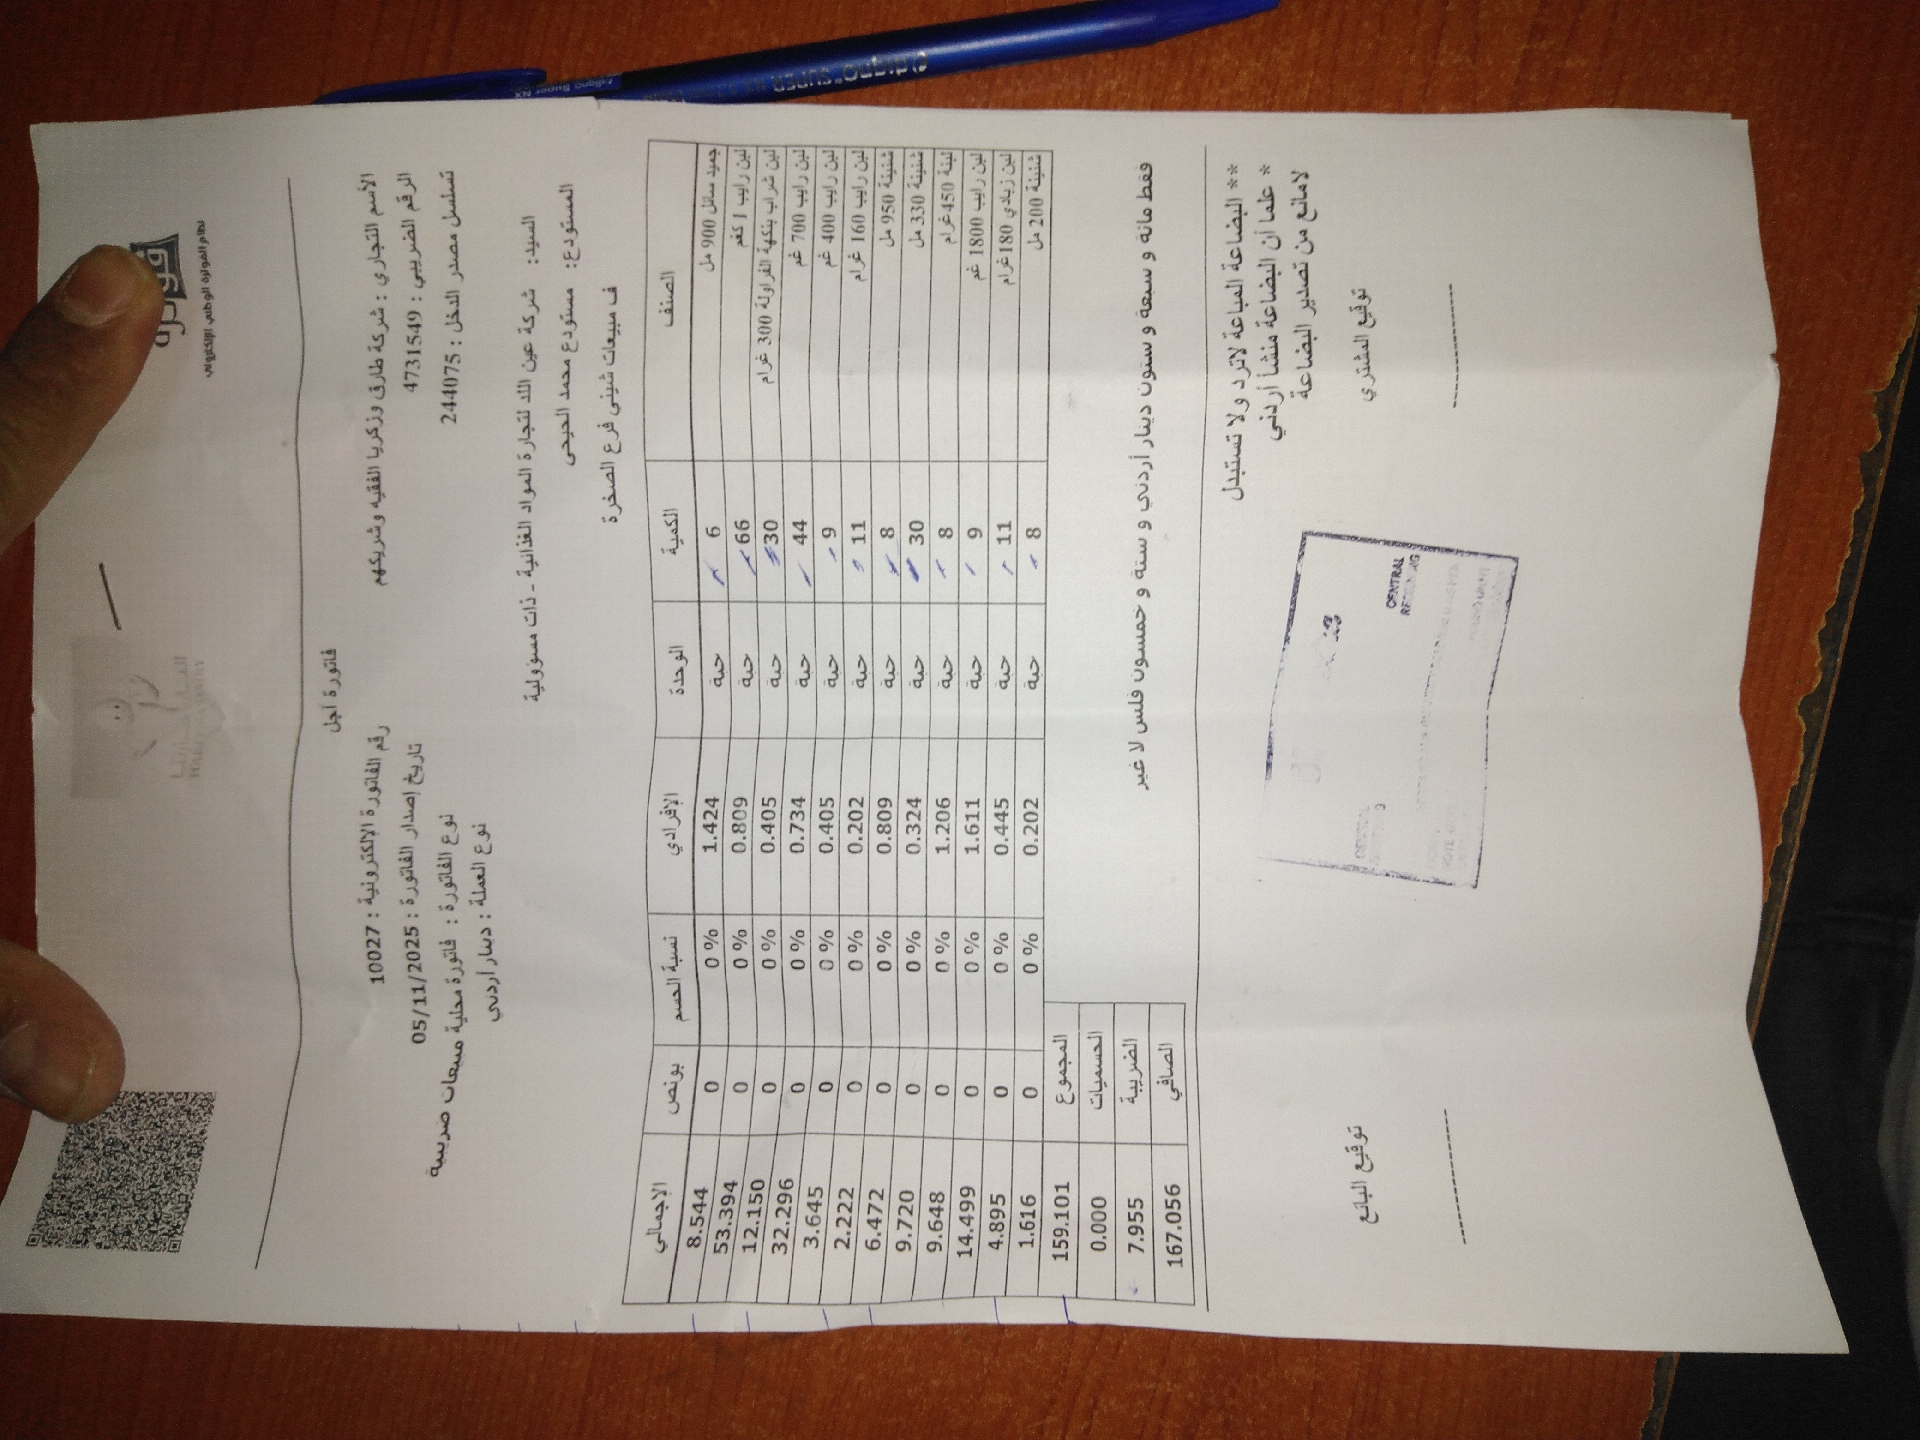 فوترة
نظام الفوترة الوطني الإلكتروني
فاتورة آجل
الأسم التجاري : شركة طارق وزكريا الفقيه وشريكهم
رقم الفاتورة الإلكترونية : 10027
الرقم الضريبي : 4731549
تاريخ إصدار الفاتورة : 05/11/2025
تسلسل مصدر الدخل : 244075
نوع الفاتورة : فاتورة محلية مبيعات ضريبية
نوع العملة : دينار أردني
السيد: شركة عين اللد لتجارة المواد الغذائية - ذات مسؤولية
المستودع: مستودع محمد الحيحى
ف مبيعات شينى فرع الصخرة
الصنف الكمية الوحدة الإفرادي نسبة الحسم بونص الإجمالي
جميد سائل 900 مل 6 حبة 1.424 0 % 0 8.544
لبن رايب 1 كغم 66 حبة 0.809 0 % 0 53.394
لبن شراب بنكهة الفراولة 300 غرام 30 حبة 0.405 0 % 0 12.150
لبن رايب 700 غم 44 حبة 0.734 0 % 0 32.296
لبن رايب 400 غم 9 حبة 0.405 0 % 0 3.645
لبن رايب 160 غرام 11 حبة 0.202 0 % 0 2.222
شنينة 950 مل 8 حبة 0.809 0 % 0 6.472
شنينة 330 مل 30 حبة 0.324 0 % 0 9.720
لبنة 450غرام 8 حبة 1.206 0 % 0 9.648
لبن رايب 1800 غم 9 حبة 1.611 0 % 0 14.499
لبن زبادي 180غرام 11 حبة 0.445 0 % 0 4.895
شنينة 200 مل 8 حبة 0.202 0 % 0 1.616
المجموع 159.101
الحسميات 0.000
الضريبة 7.955
الصافي 167.056
فقط مائة و سبعة و ستون دينار أردني و ستة و خمسون فلس لا غير
** البضاعة المباعة لاترد ولا تستبدل
* علما أن البضاعة منشأ أردني
لامانع من تصدير البضاعة
توقيع المشتري
توقيع البائع
CENTRAL
RECEIVING